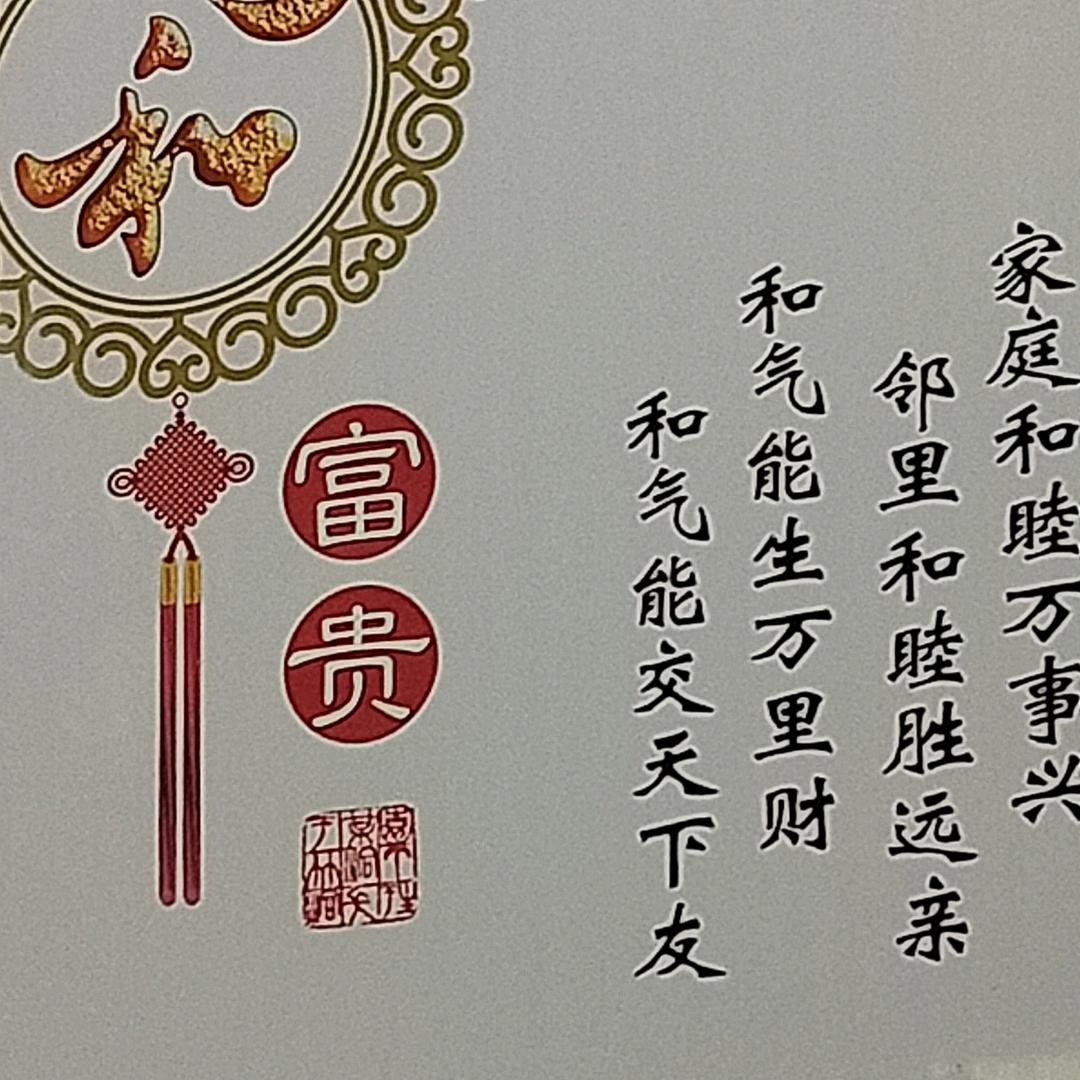 家庭和睦万事兴
邻里和睦胜远亲
和气能生万里财
和气能交天下友
和
富
贵